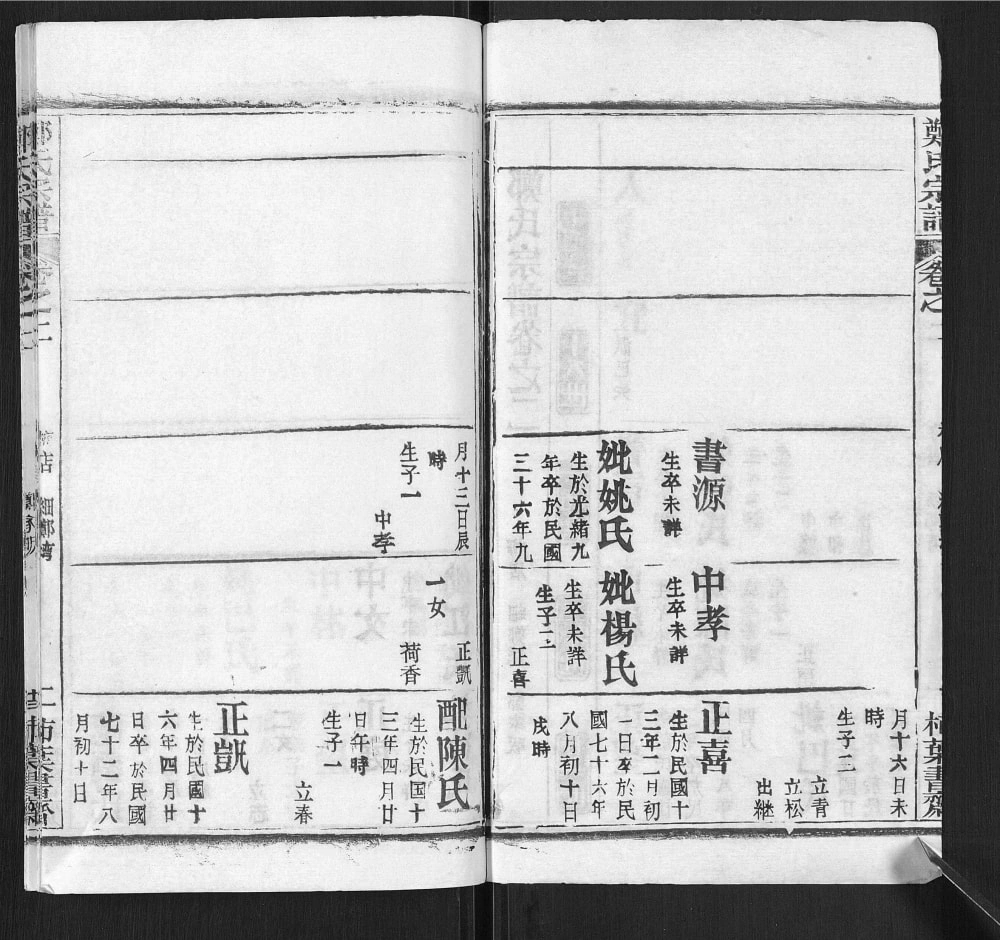 鄭氏宗譜
卷之二
柯葉書齋
書源
生卒未詳
妣姚氏
生於光緒九
年卒於民國
三十六年九
中孝
生卒未詳
妣楊氏
生卒未詳
生子二
正喜
月十六日未
時
生子二
立青
立松
出継
正喜
生於民國十
三年二月初
一日卒於民
國七十六年
八月初十日
戌時
月十三日辰
時
生子一
中孝
正凱
一女
荷香
配陳氏
生於民国十
三年四月廿
日午時
生子一
立春
正凱
生於民國十
六年四月廿
日卒於民國
七十二年八
月初十日
細鄭灣